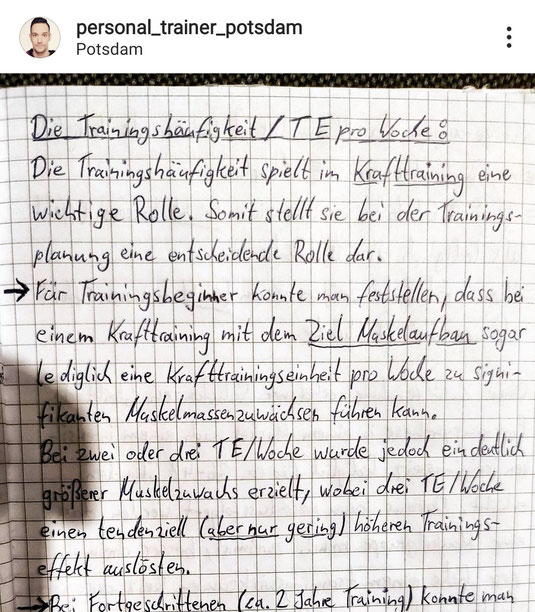 personal_trainer_potsdam
Potsdam
Die Trainingshäufigkeit / TE pro Woche:
Die Trainingshäufigkeit spielt im Krafttraining eine
wichtige Rolle. Somit stellt sie bei der Trainings-
planung eine entscheidende Rolle dar.
→ Für Trainingsbeginner konnte man feststellen, dass bei
einem Krafttraining mit dem Ziel Muskelaufbau sogar
lediglich eine Krafttrainingseinheit pro Woche zu signi-
fikanten Muskelmassenzuwächsen führen kann.
Bei zwei oder drei TE/Woche wurde jedoch ein deutlich
größerer Muskelzuwachs erzielt, wobei drei TE/Woche
einen tendenziell (aber nur gering) höheren Trainings-
effekt auslösten.
→ Bei Fortgeschrittenen (ca. 2 Jahre Training) konnte man